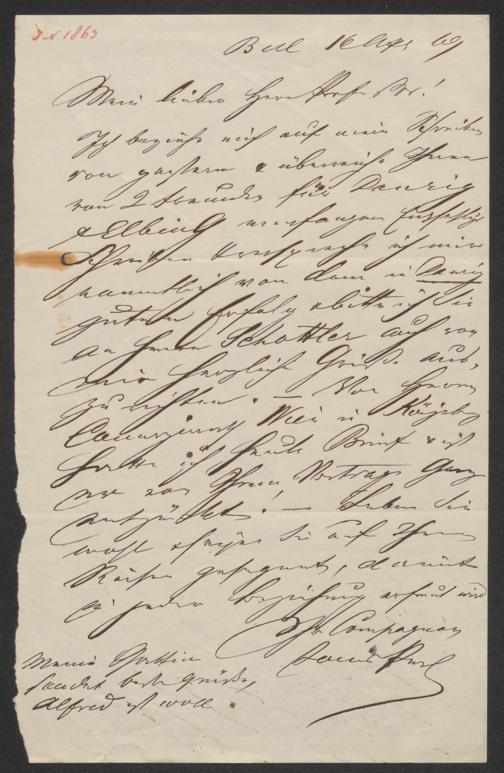 J.N. 1863
Berl 16 Apr 69
Mein lieber Herr Prof. Dr.!
Ich beziehe mich auf mein Schreiben
von gestern & überreiche Ihnen
von 2 Freunden für Danzig
& Elbing
Schreiben verspreche ich mir
namentlich von dem in Danzig
guten Erfolg & bitte ich Sie
an Herrn Schottler auch von
mir herzliche Grüße aus-
zurichten. — Von Herrn
Wien in Königsbg
hatte ich heute Brief & ist
er von Ihrem Vortrage ganz
entzückt! — Leben Sie
wohl & seien Sie auf Ihren
Reisen gesegnet, damit
in jeder Beziehung erfreut
Ihr Compagnon
Louis
Meine Gattin
sendet beste Grüße,
Alfred ist wohl.